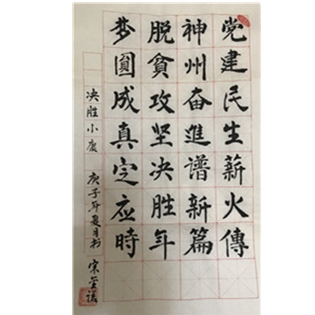 党建民生薪火傳
神州奋進譜新篇
脱貧攻坚决胜年
梦圓成真定应時
决胜小康
庚子年夏月书